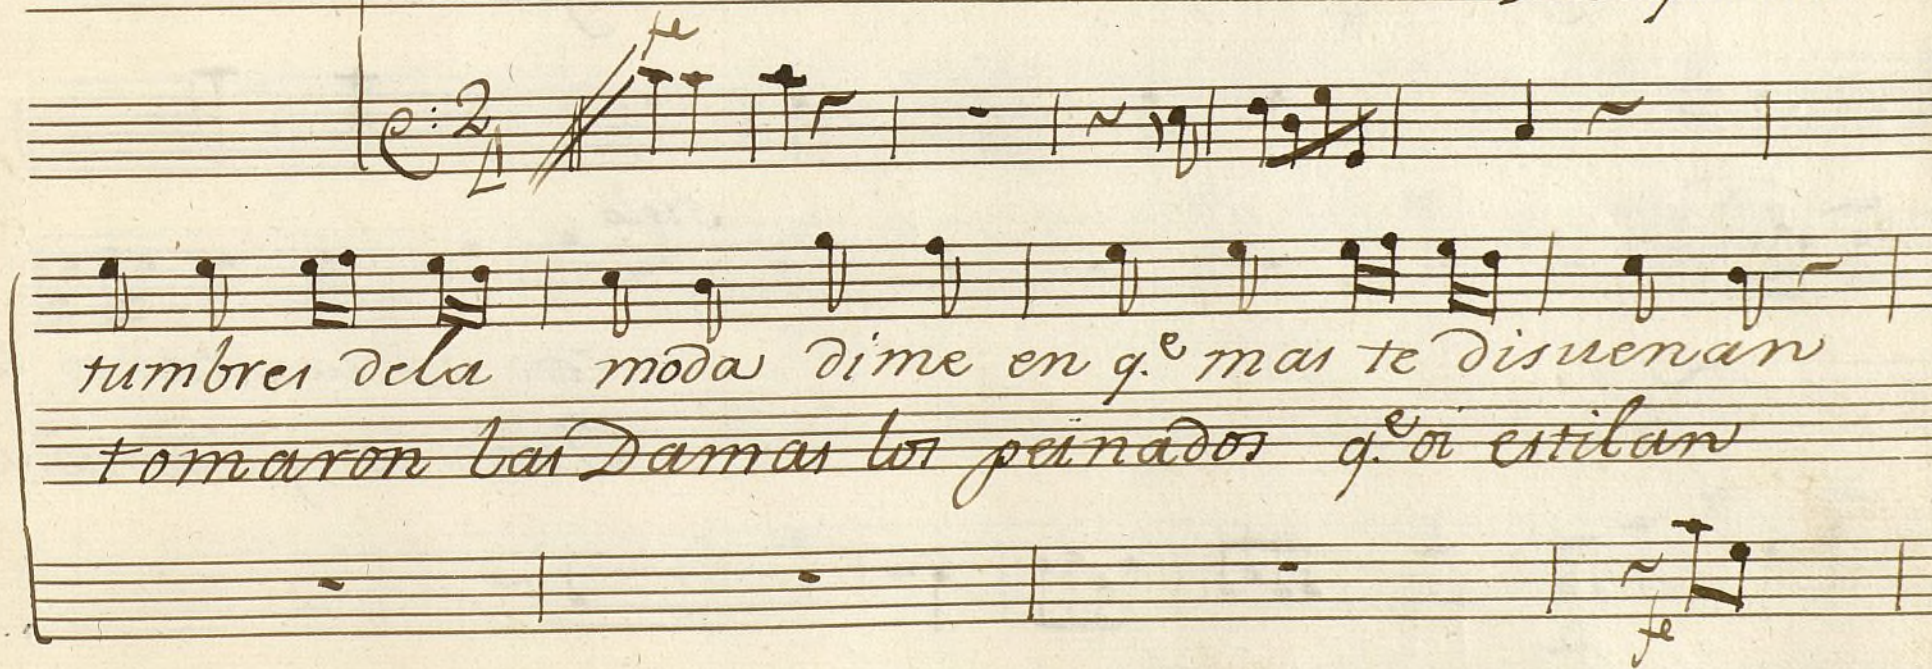 fe
2
4
tumbres dela moda dime en q.e mas te disuenan
tomaron las Damas los peinados q.e oi estilan
fe